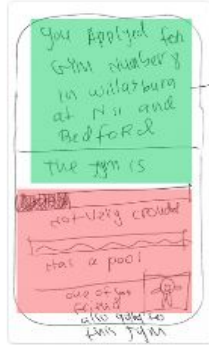 You Applyed for
Gym Number 8
in williasburn
at N11 and
Bedford
The gym is
not very crowded
Has a pool
one of your
Friend
also goes to
this gym